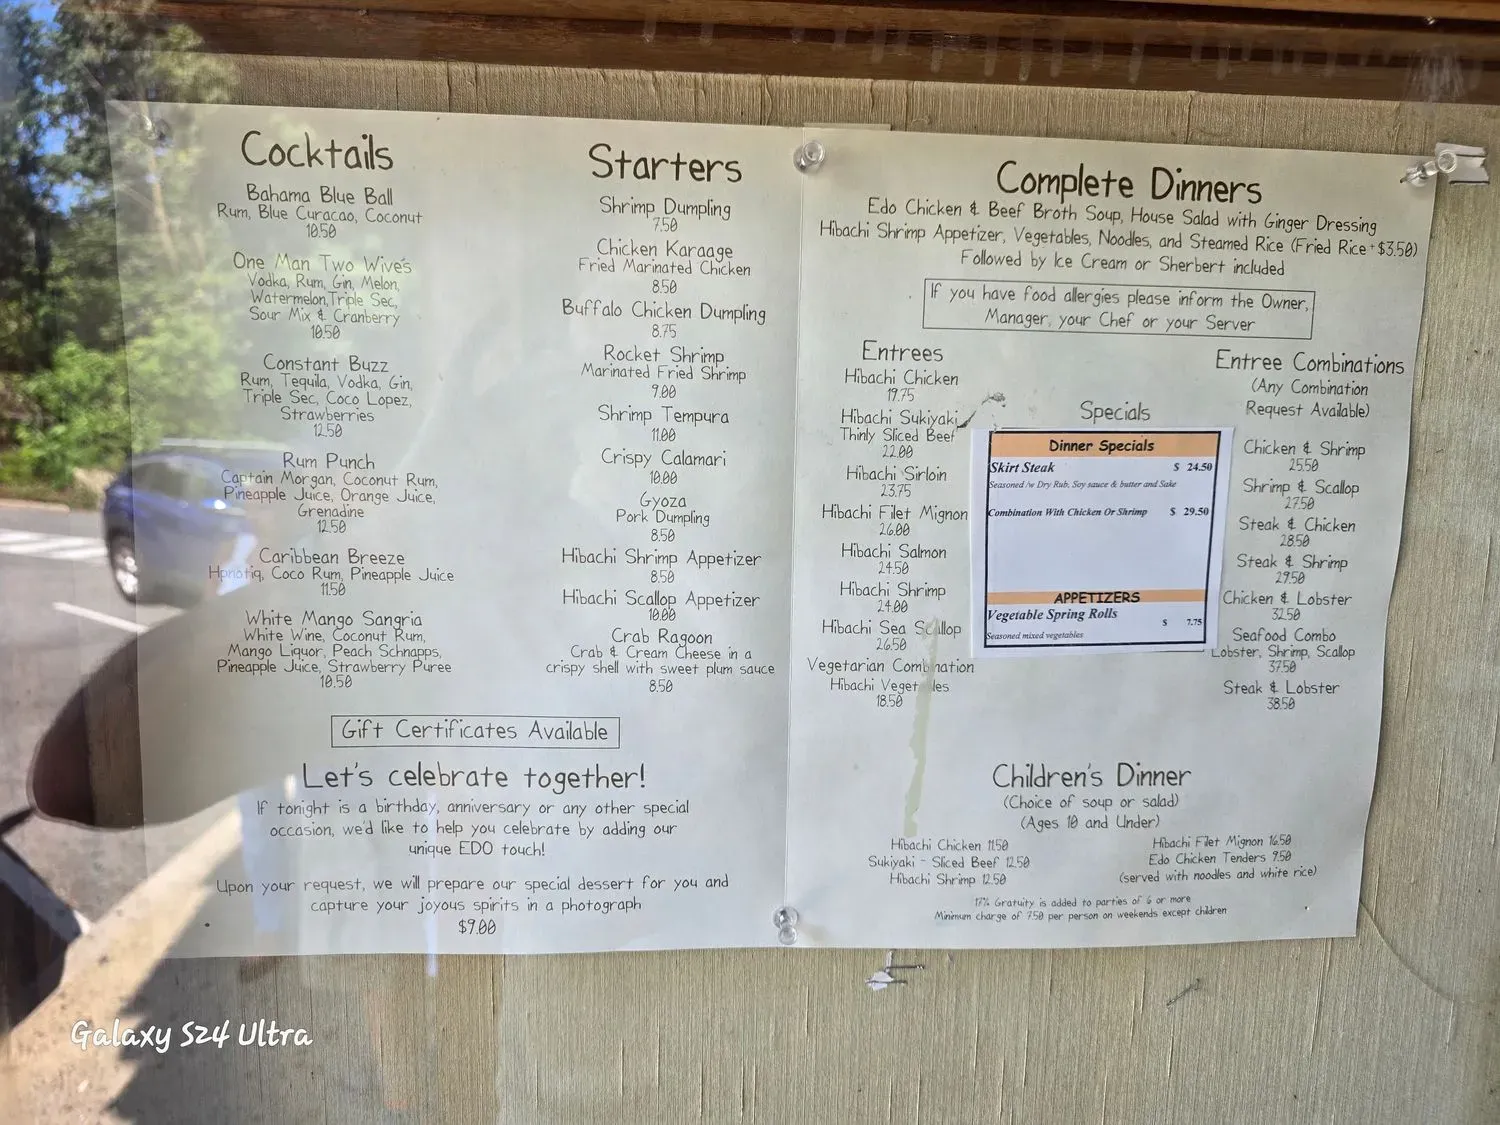 Cocktails
Bahama Blue Ball
Rum, Blue Curacao, Coconut
10.50
One Man Two Wive's
Vodka, Rum, Gin, Melon,
Watermelon, Triple Sec,
Sour Mix & Cranberry
10.50
Constant Buzz
Rum, Tequila, Vodka, Gin,
Triple Sec, Coco Lopez,
Strawberries
12.50
Rum Punch
Captain Morgan, Coconut Rum,
Pineapple Juice, Orange Juice,
Grenadine
12.50
Caribbean Breeze
Hpnotiq, Coco Rum, Pineapple Juice
11.50
White Mango Sangria
White Wine, Coconut Rum,
Mango Liquor, Peach Schnapps,
Pineapple Juice, Strawberry Puree
10.50
Starters
Shrimp Dumpling
7.50
Chicken Karaage
Fried Marinated Chicken
8.50
Buffalo Chicken Dumpling
8.75
Rocket Shrimp
Marinated Fried Shrimp
9.00
Shrimp Tempura
11.00
Crispy Calamari
10.00
Gyoza
Pork Dumpling
8.50
Hibachi Shrimp Appetizer
8.50
Hibachi Scallop Appetizer
10.00
Crab Ragoon
Crab & Cream Cheese in a
crispy shell with sweet plum sauce
8.50
Gift Certificates Available
Let's celebrate together!
If tonight is a birthday, anniversary or any other special
occasion, we'd like to help you celebrate by adding our
unique EDO touch!
Upon your request, we will prepare our special dessert for you and
capture your joyous spirits in a photograph
$9.00
Complete Dinners
Edo Chicken & Beef Broth Soup, House Salad with Ginger Dressing
Hibachi Shrimp Appetizer, Vegetables, Noodles, and Steamed Rice (Fried Rice +$3.50)
Followed by Ice Cream or Sherbert included
If you have food allergies please inform the Owner,
Manager, your Chef or your Server
Entrees
Hibachi Chicken
19.75
Hibachi Sukiyaki
Thinly Sliced Beef
22.00
Hibachi Sirloin
23.75
Hibachi Filet Mignon
26.00
Hibachi Salmon
24.50
Hibachi Shrimp
24.00
Hibachi Sea Scallop
26.50
Vegetarian Combination
Hibachi Vegetables
18.50
Specials
Dinner Specials
Skirt Steak $ 24.50
Seasoned /w Dry Rub, Soy sauce & butter and Sake
Combination With Chicken Or Shrimp $ 29.50
APPETIZERS
Vegetable Spring Rolls $ 7.75
Seasoned mixed vegetables
Entree Combinations
(Any Combination
Request Available)
Chicken & Shrimp
25.50
Shrimp & Scallop
27.50
Steak & Chicken
28.50
Steak & Shrimp
29.50
Chicken & Lobster
32.50
Seafood Combo
Lobster, Shrimp, Scallop
37.50
Steak & Lobster
38.50
Children's Dinner
(Choice of soup or salad)
(Ages 10 and Under)
Hibachi Chicken 11.50
Sukiyaki - Sliced Beef 12.50
Hibachi Shrimp 12.50
Hibachi Filet Mignon 16.50
Edo Chicken Tenders 9.50
(served with noodles and white rice)
17% Gratuity is added to parties of 6 or more
Minimum charge of 7.50 per person on weekends except children
Galaxy S24 Ultra